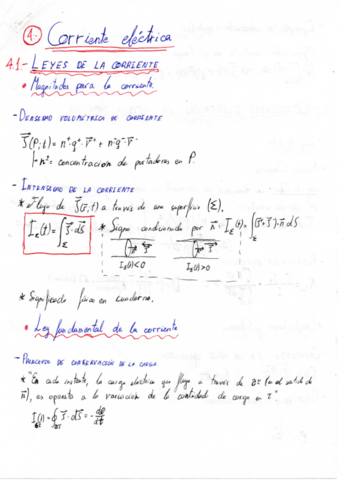 4. Corriente eléctrica
4.1- LEYES DE LA CORRIENTE
• Magnitudes para la corriente.
- DENSIDAD VOLUMÉTRICA DE CORRIENTE
J⃗(P;t) = n⁺·q⁺·v⃗⁺ + n⁻·q⁻·v⃗⁻
n± = concentración de portadores en P.
- INTENSIDAD DE LA CORRIENTE
* Flujo de J⃗(r⃗;t) a través de una superficie (Σ),
I_Σ(t) = ∫_Σ J⃗·dS⃗
* Signo condicionado por n⃗: I_Σ(t) = ∫_Σ (J⃗⁺+J⃗⁻)·n⃗·dS
I_Σ(t)<0 I_Σ(t)>0
* Significado físico en cuaderno.
• Ley fundamental de la corriente
- PRINCIPIO DE CONSERVACIÓN DE LA CARGA
* "En cada instante, la carga eléctrica que fluye a través de ∂τ (en el sentido de
n⃗), es opuesta a la variación de la cantidad de carga en τ"
I_∂τ(t) = ∮_∂τ J⃗·dS⃗ = -dQ/dt